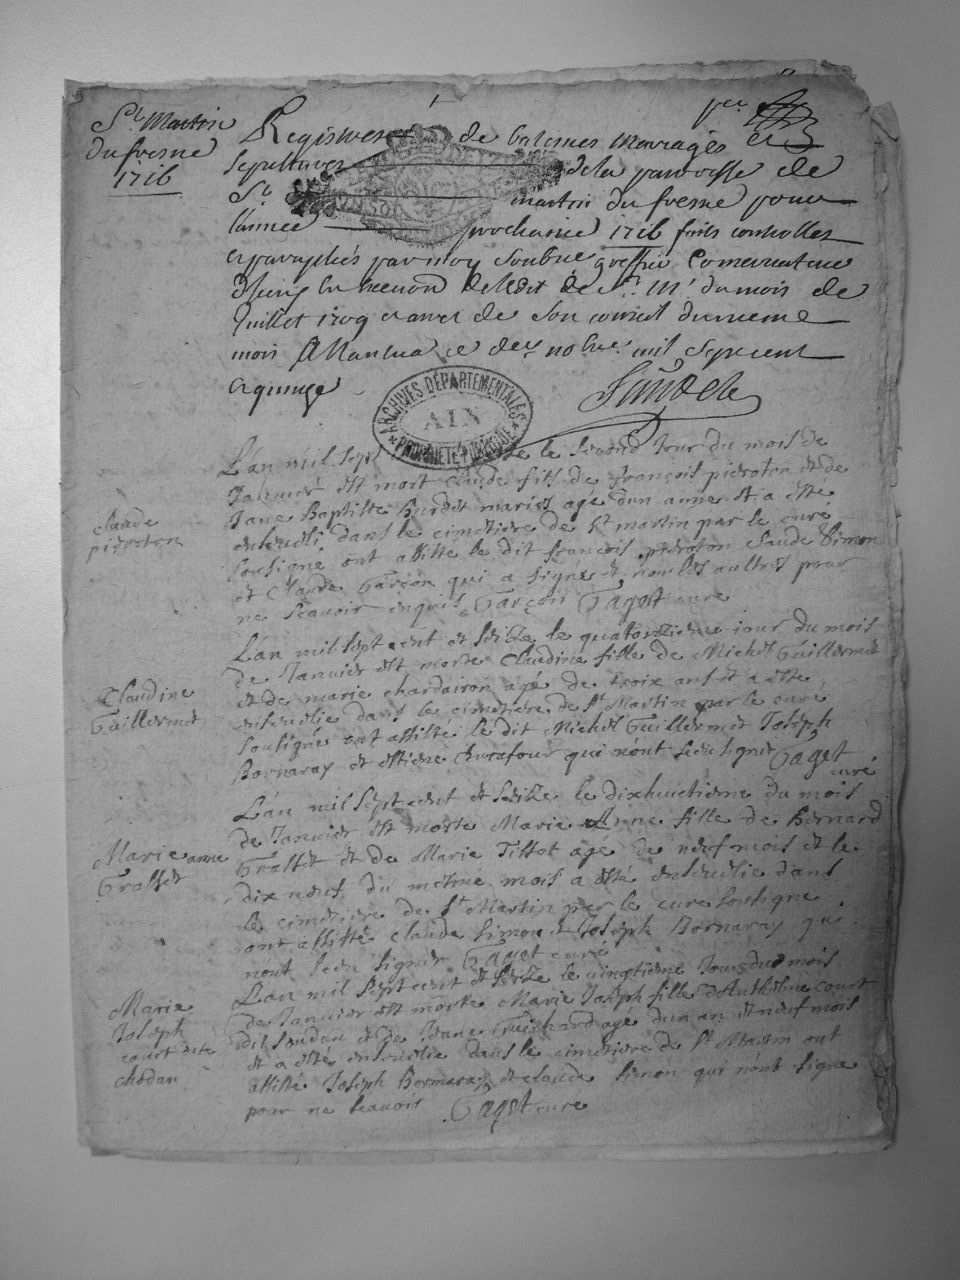 St Martin
du fresne
1716
Registres de batemes Mariages et
sepultures de la paroisse de
St martin du fresne pour
lannee prochaine 1716 fait controller
et paraphés par moy soubne greffier Conservateur
du mois de
Juillet 1709 et arrest de son conseil du meme
mois A Nantua ce der nobre mil sept cent
et quinze
ARCHIVES DÉPARTEMENTALES
AIN
PROPRIÉTÉ PUBLIQUE
claude
pieroton
L'an mil sept le second Jour du mois de
Januier est mort claude fils de françois pieroton et de
Jane Baptiste Burdet mariés agé dun anne et a esté
enseueli dans le cimetiere de St martin par le cure
sousigne ont assisté le dit françois pieroton claude Simon
et Claude Garçon qui a signe et non les aultres pour
ne scauoir enquis Garçon Gaget cure
Claudine
Guillermet
L'an mil sept cent et seitze le quatorzieme iour du mois
de Januier est morte Claudine fille de Michel Guillermet
et de marie chardairon agé de troix ans et a esté
enseuelie dans le cimetiere de St Martin par le cure
sousigné ont assisté le dit Michel Guillermet Joseph
Bornaray et estiene qui nónt sceu signer Gaget
curé
Marie anne
Grosset
L'an mil sept cent et seitze le dixhuictieme du mois
de Januier est morte Marie Anne fille de Bernard
Grosset et de Marie Tissot age de neuf mois et le
dix neuf du mesme mois a esté enseuelie dans
le cimetiere de St Martin par le cure sousigne
ont assisté claude Simon et Joseph Bornaray qui
nónt sceu signer Gaget curé
Marie
Joseph
court dite
chodan
L'an mil sept cent et seitze le vingtieme Jour du mois
de Januier est morte Marie Joseph fille d'Anthelme court
dit et de Jeane Guichard agé dun an et neuf mois
et a esté enseuelie dans le cimetiere de St Martin ont
assisté Joseph Bornaray et claude Simon qui nónt signe
pour ne scauoir Gaget cure